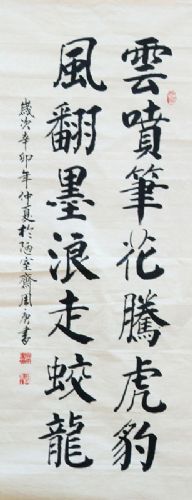 雲噴筆花騰虎豹
風翻墨浪走蛟龍
歲次辛卯年仲夏於陋室齋周彥書